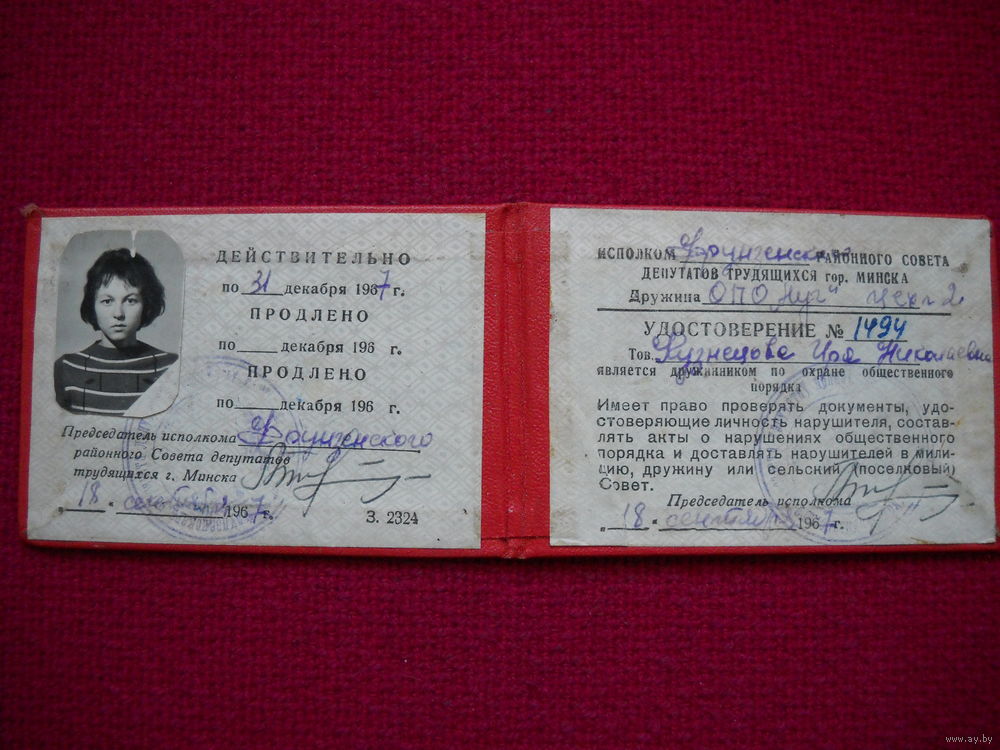 ДЕЙСТВИТЕЛЬНО
по 31 декабря 1967 г.
ПРОДЛЕНО
по декабря 196 г.
ПРОДЛЕНО
по декабря 196 г.
Председатель исполкома Фрунзенского
районного Совета депутатов
трудящихся г. Минска
„18“ сентября 1967 г.
З. 2324
ИСПОЛКОМ Фрунзенского РАЙОННОГО СОВЕТА
ДЕПУТАТОВ ТРУДЯЩИХСЯ гор. МИНСКА
Дружина ОПО
УДОСТОВЕРЕНИЕ № 1494
Тов. Кузнецова Николаевна
является дружинником по охране общественного
порядка
Имеет право проверять документы, удо-
стоверяющие личность нарушителя, состав-
лять акты о нарушениях общественного
порядка и доставлять нарушителей в мили-
цию, дружину или сельский (поселковый)
Совет.
Председатель исполкома
„18“ сентября 1967 г.
www.ay.by